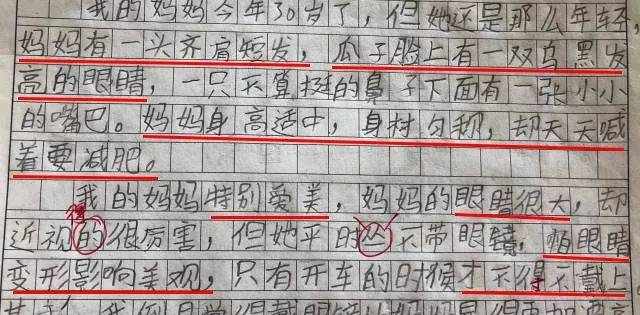 我的妈妈今年30岁了，但她还是那么年轻，
妈妈有一头齐肩短发，瓜子脸上有一双乌黑发
亮的眼睛，一只不算挺的鼻子下面有一张小小
的嘴巴。妈妈身高适中，身材匀称，却天天喊
着要减肥。
我的妈妈特别爱美，妈妈的眼睛很大，却
得
近视的很厉害，但她平时从不带眼镜，怕眼睛
变形影响美观，只有开车的时候才不得不戴上